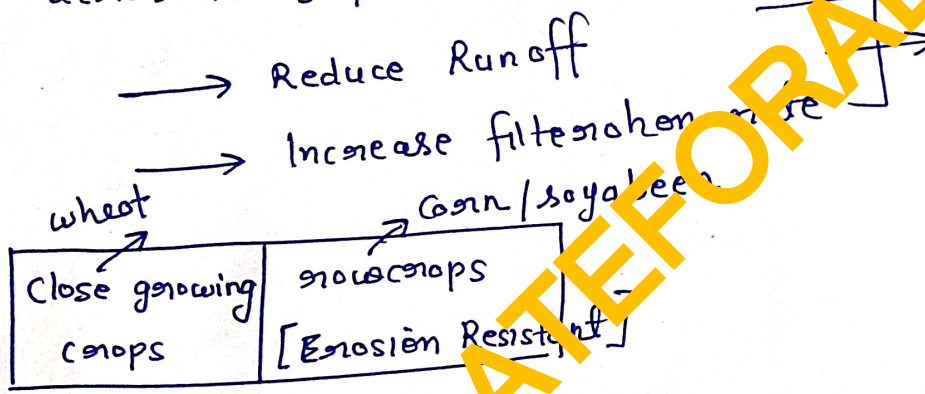 → Reduce Runoff
→ Increase filterohen rate
wheat
Corn / soyabeen
Close growing crops
rowcrops
[Erosion Resistant]
ATEFORAL